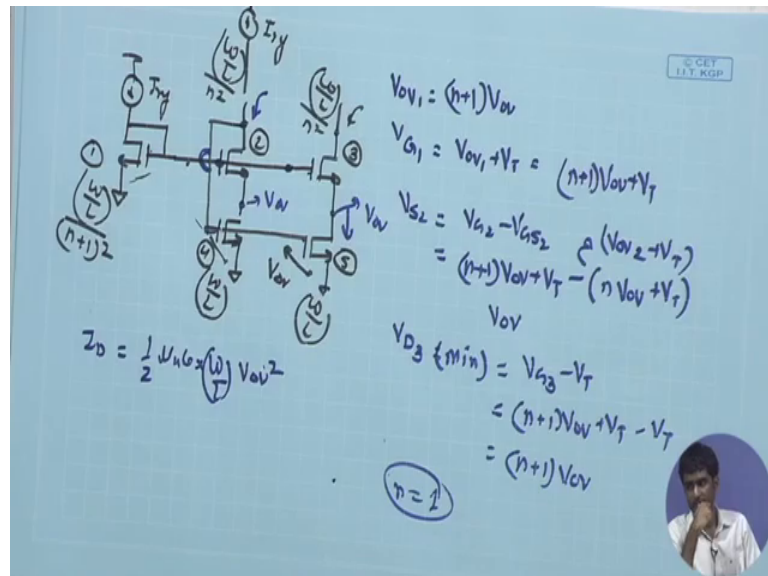 I_xy
I_xy
(W/L)/n2
(W/L)/n2
© CET
I.I.T. KGP
1
2
3
4
5
(W/L)/(n+1)2
(W/L)
(W/L)
Vov
Vov
Vov
I_D = 1/2 μnCox (W/L) Vov²
Vov1 = (n+1)Vov
VG1 = Vov1 + VT = (n+1)Vov + VT
VS2 = VG2 - VGS2 (Vov2 + VT)
= (n+1)Vov + VT - (n Vov + VT)
Vov
VD3 (min) = VG3 - VT
= (n+1)Vov + VT - VT
= (n+1)Vov
n = 1